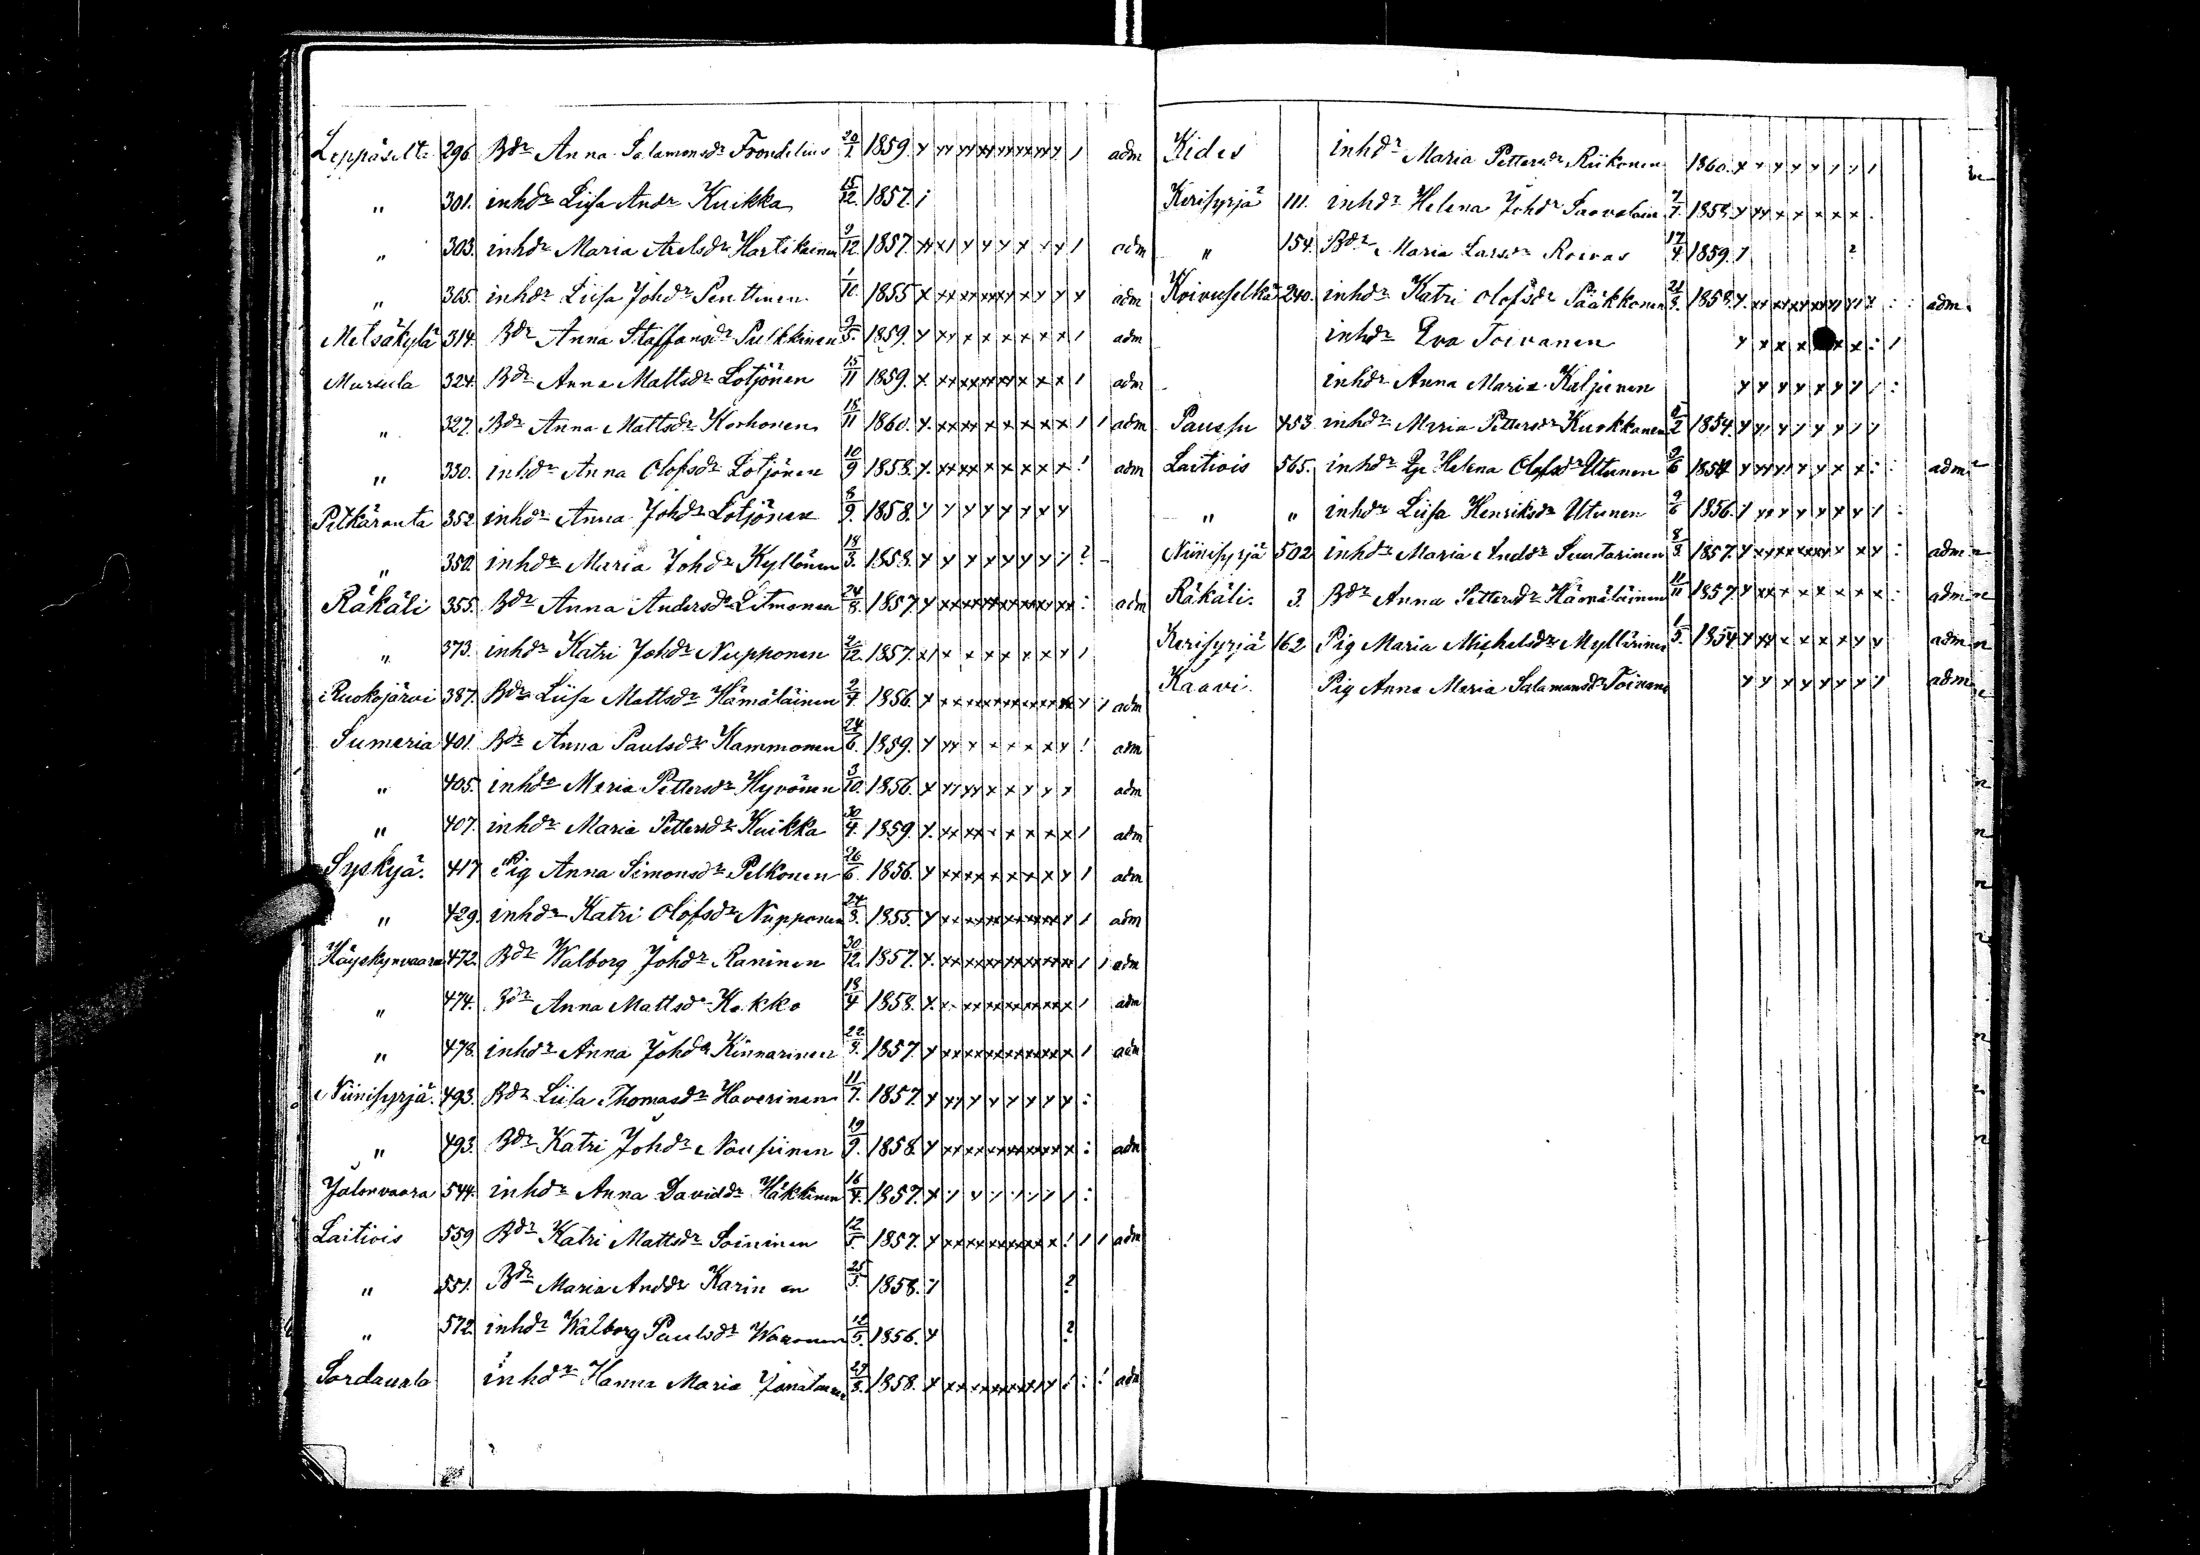 Leppäselk. 296. Bdr Anna Salamonsdr Frondelius 20/1. 1859. adm
" 301. inhdr Liisa Andr Kuikka 15/12. 1857.
" 303. inhdr Maria Axelsdr Hartikainen 9/12. 1857. adm
" 305. inhdr Liisa Johdr Penttinen 1/10. 1855 adm
Metsäkylä 314. Bdr Anna Staffansdr Pulkkinen 9/5. 1859. adm
Mursula 324. Bdr Anna Mattsdr Lötjönen 15/11 1859. adm
" 327. Bdr Anna Mattsdr Korhonen 18/11 1860. adm
" 330. inhdr Anna Olofsdr Lötjönen 10/9 1858. adm
Pitkäranta 352 inhdr Anna Johdr Lötjönen 8/9. 1858.
" 350. inhdr Maria Johdr Kyllönen 18/3. 1858. ? -
Räkäli 355. Bdr Anna Andersdr Litmanen 24/8. 1857. adm
" 373. inhdr Katri Johdr Nupponen 2/12. 1857.
Ruokojärvi 387. Bdr Liisa Mattsdr Hämäläinen 2/4. 1856. adm
Sumeria 401. Bdr Anna Paulsdr Kammonen 24/6. 1859. adm
" 405. inhdr Maria Pettersdr Hyvönen 3/10. 1856. adm
" 407. inhdr Maria Pettersdr Kuikka 30/4. 1859. adm
Syskyä. 417 Pig Anna Simonsdr Pelkonen 26/6. 1856. adm
" 429. inhdr Katri Olofsdr Nupponen 24/3. 1855. adm
Häyskynvaara 472. Bdr Walborg Johdr Raninen 30/12. 1857. adm
" 474. Bdr Anna Mattsdr Kokko 18/4 1858. adm
" 478. inhdr Anna Johdr Kinnarinen 22/3. 1857. adm
Niinisyrjä. 493. Bdr Liisa Thomasdr Haverinen 11/7. 1857.
" 493. Bdr Katri Johdr Nousiinen 19/9. 1858. adm
Jalonvaara 544. inhdr Anna Daviddr Häkkinen 16/4. 1857.
Laitiois 559 Bdr Katri Mattsdr Soininen 12/5. 1857. adm
" 551. Bdr Maria Anddr Karinen 25/3. 1858. ?
" 572. inhdr Walborg Paulsdr Waronen 12/5. 1856. ?
Sordavala inhdr Hanna Maria 29/3. 1858. adm
Kides inhdr Maria Pettersdr Riikonen 1860.
Kerisyrjä 111. inhdr Helena Johdr Saavalain 7/7. 1858.
" 154. Bdr Maria Larsdr Roivas 17/4. 1859. ?
Koivuselkä 240. inhdr Katri Olofsdr Pääkkönen 21/8. 1858. adm.
inhdr Eva Toivanen
inhdr Anna Maria Kaljunen
Paussu 453 inhdr Maria Pettersdr Kuokkanen 2/2 1854.
Laitiois 565. inhdr Helena Olofsdr Utunen 9/6 1854 adm
" " inhdr Liisa Henriksdr Utunen 9/6 1856.
Niinisyrjä 502 inhdr Maria Anddr Suutarinen 8/3. 1857. adm
Räkäli. 3. Bdr Anna Pettersdr Hämäläinen 11/11 1857. adm
Kerisyrjä 162 Pig Maria Michelsdr Myllärinen 1/5. 1854. adm
Kaavi. Pig Anna Maria Salamonsdr Toivane adm